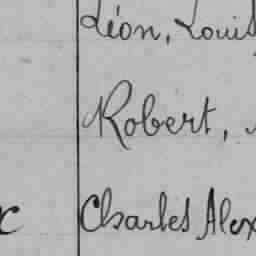 Léon, Louis
Robert,
Charles Alex